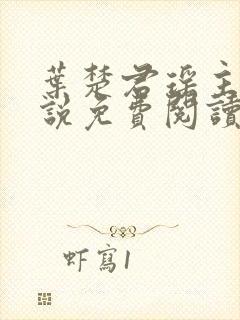 葉楚君瑤主
說免費閱讀
虾寫1